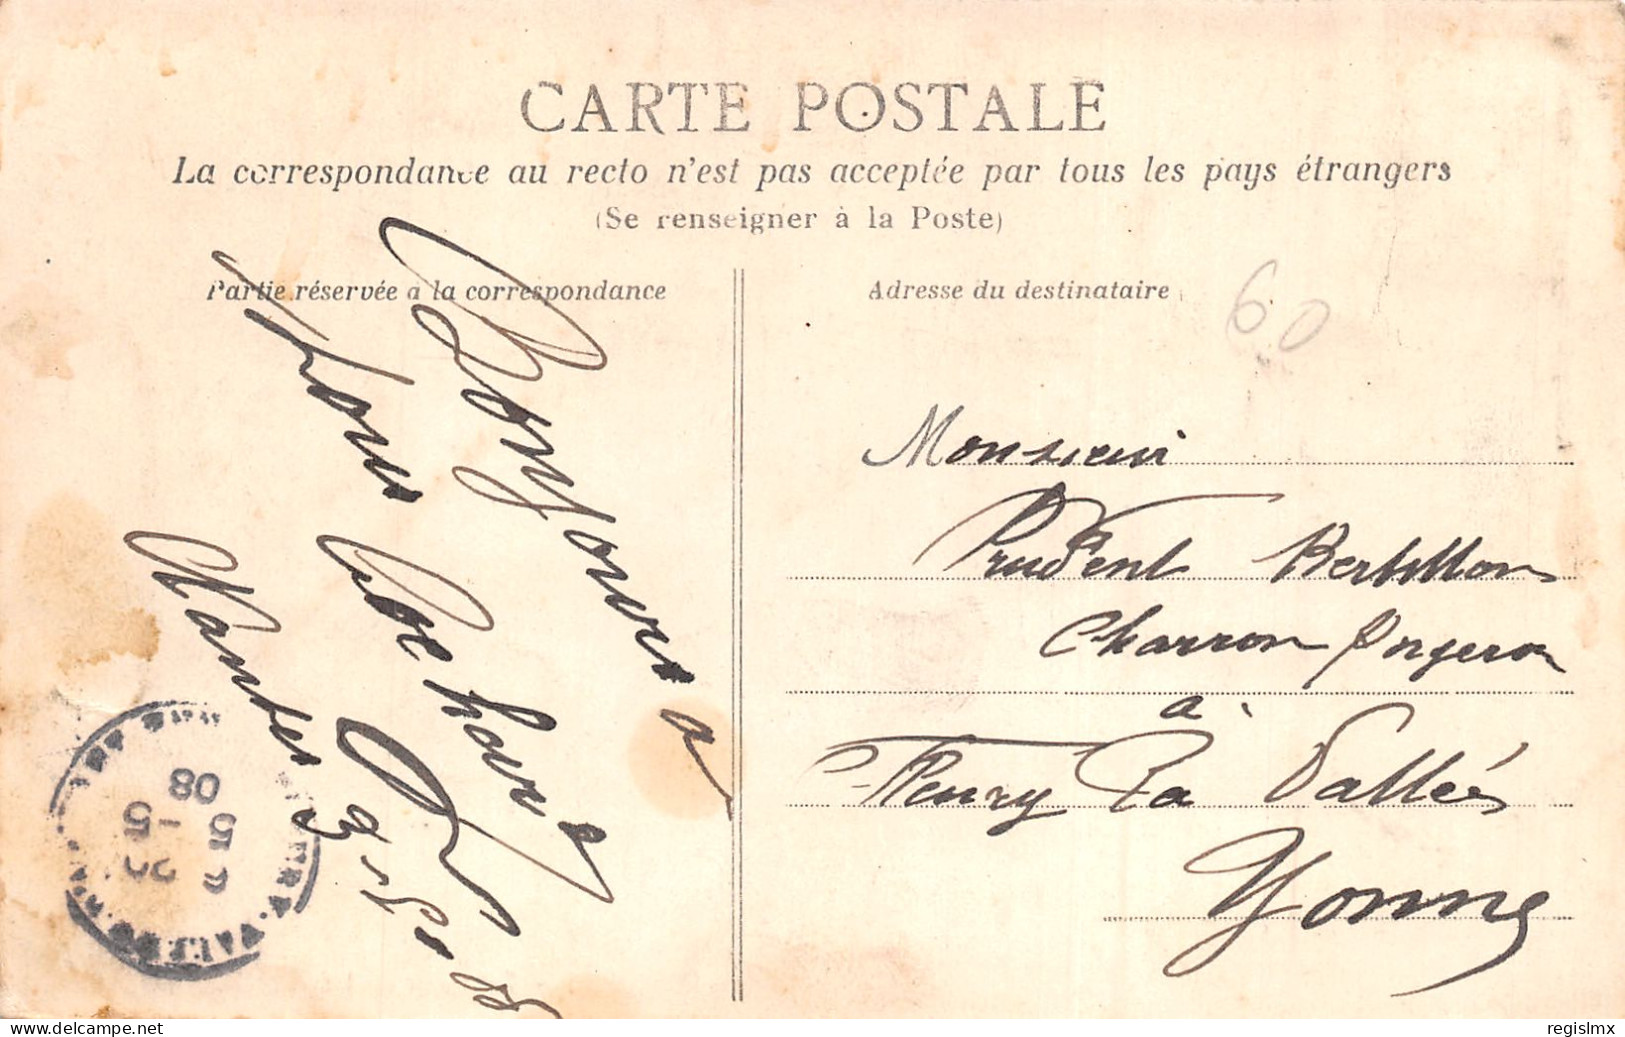 CARTE POSTALE
La correspondance au recto n'est pas acceptée par tous les pays étrangers
(Se renseigner à la Poste)
Partie réservée à la correspondance
Adresse du destinataire
60
Bonjours a
tous
Nantes
Monsieur
Prudent Bertillon
Charron forgeron
a
Fleury La Vallée
Yonne
22
5 - 5
08
delcampe.net
regislmx